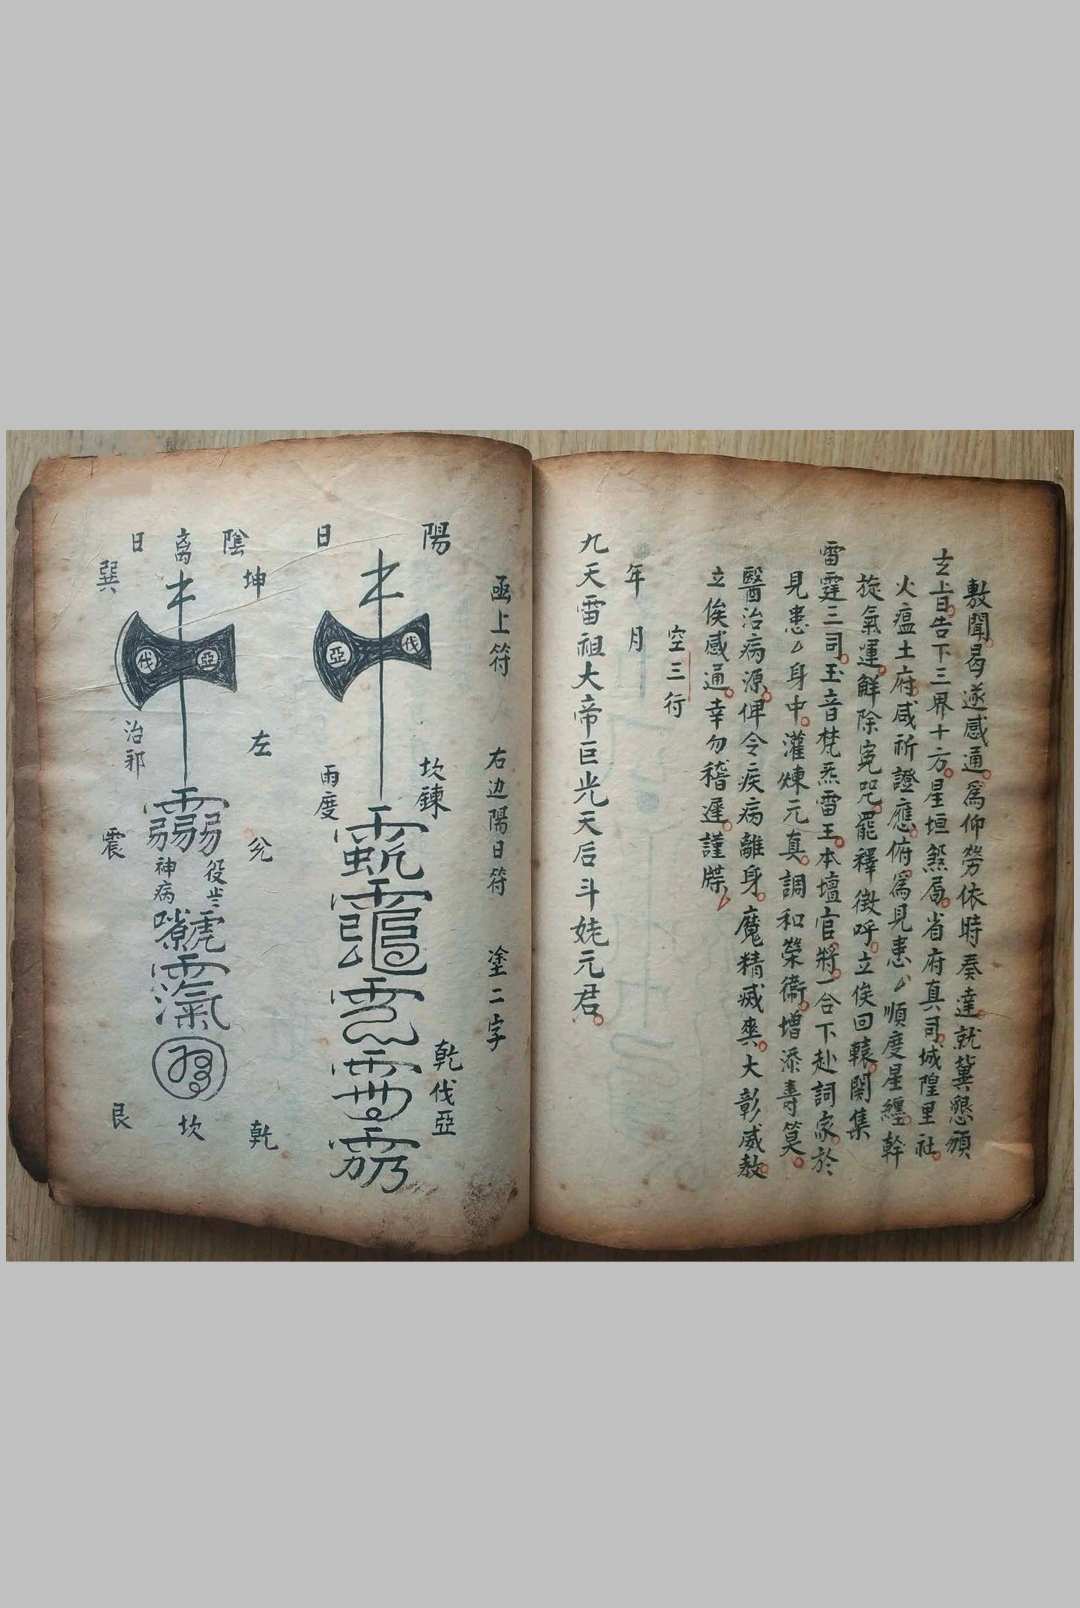 敷聞曷遂感通爲仰勞依時奏達就冀懇頒
玄上旨告下三界十方星垣煞局省府真司城隍里社
火瘟土府咸祈證應俯爲見患順度星纏斡
旋氣運觧除寃咒罷釋徵呼立俟回轅関集
雷霆三司玉音梵炁雷王本壇官將一合下赴詞家於
見患身中灌煉元真調和榮衞增添壽筭
醫治病源俾令疾病離身魔精滅爽大彰威教
立俟感通幸勿稽遲謹牒
空三行
年 月
九天雷祖大帝巨光天后斗姥元君
函上符 右边陽日符 塗二字
陽 日
伐 亞
坎鍊
雨度
乾伐亞
陰 日
坤 离 巽
伐 亞
治邪
左
兊 震
役
神病
乾 坎 艮